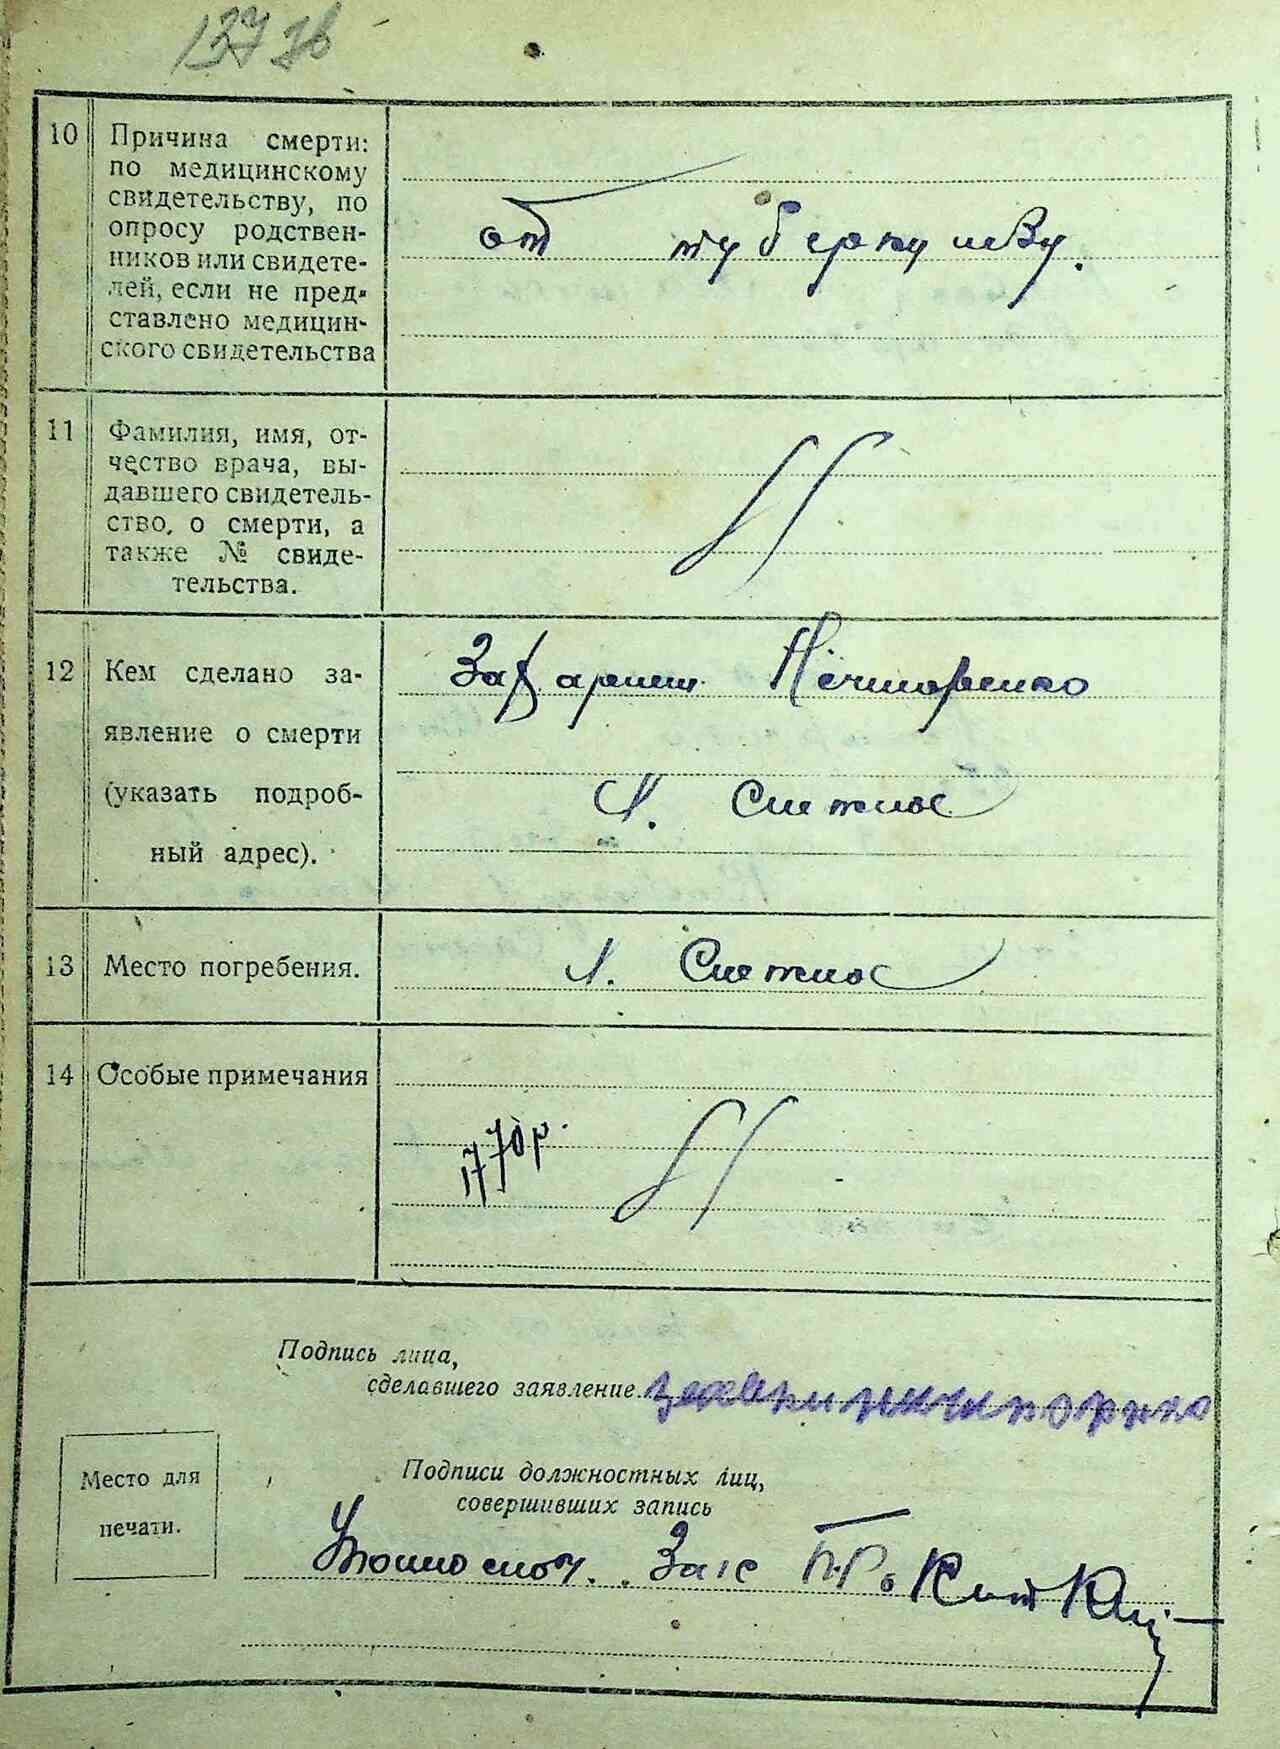 10 Причина смерти:
по медицинскому
свидетельству, по
опросу родствен-
ников или свидете-
лей, если не пред-
ставлено медицин-
ского свидетельства
от туберкулёзу.
11 Фамилия, имя, от-
чество врача, вы-
давшего свидетель-
ство, о смерти, а
также № свиде-
тельства.
12 Кем сделано за-
явление о смерти
(указать подроб-
ный адрес).
Нечипоренко
с. Снежное
13 Место погребения.
с. Снежное
14 Особые примечания
1770р.
Подпись лица,
сделавшего заявление
Подписи должностных лиц,
совершивших запись
Место для
печати.
Уполномоч. Загс